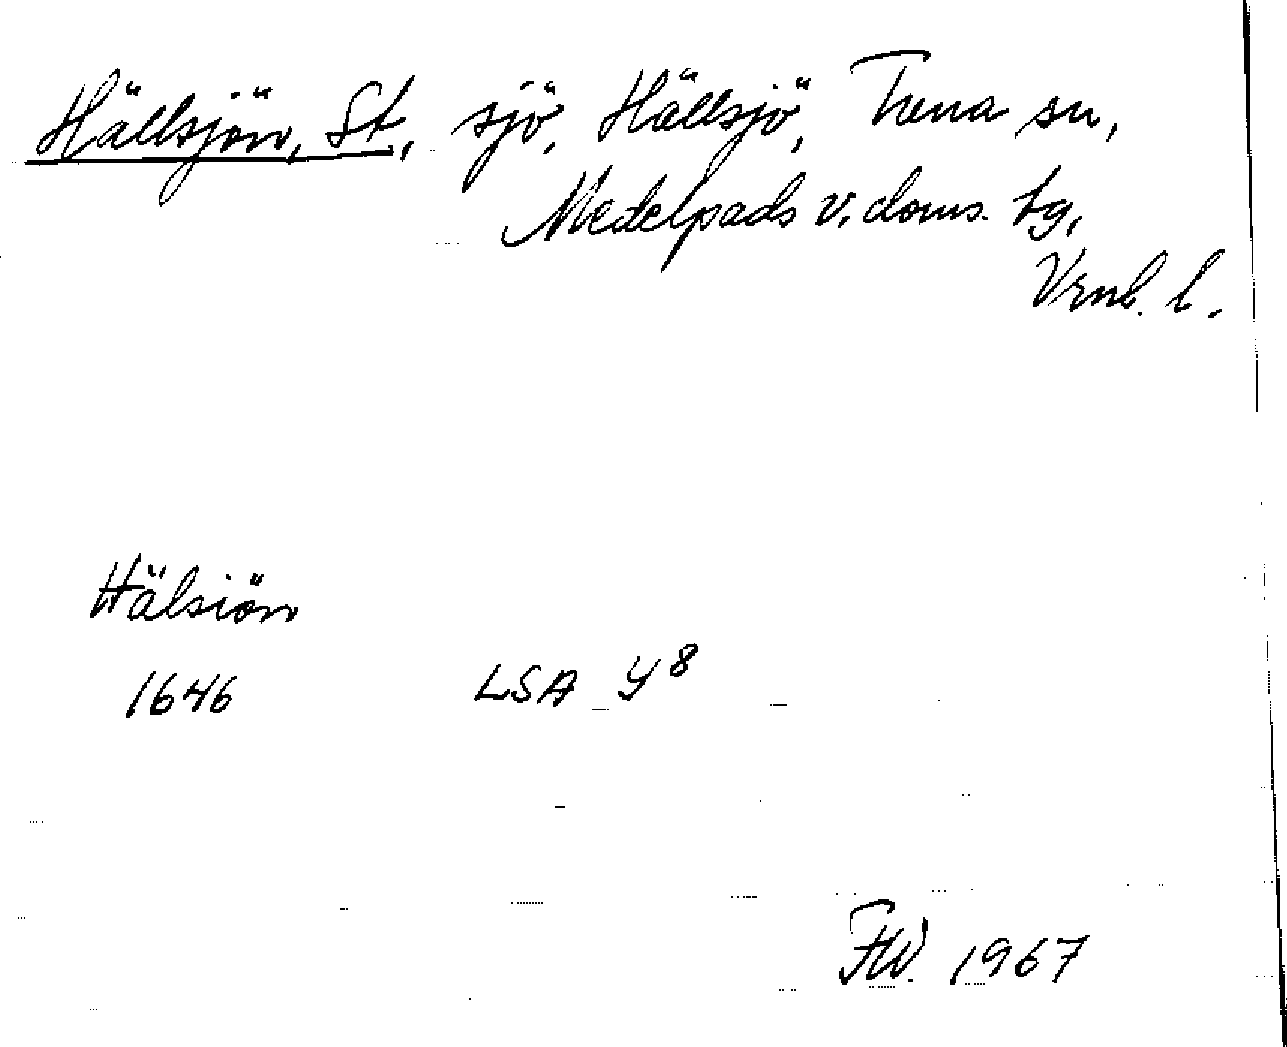 Hällsjön, St., sjö, Hällsjö, Tuna sn,
Medelpads v. doms. tg,
Vrnl. l.
Hälsiön
1646 LSA Y 8
FW. 1967